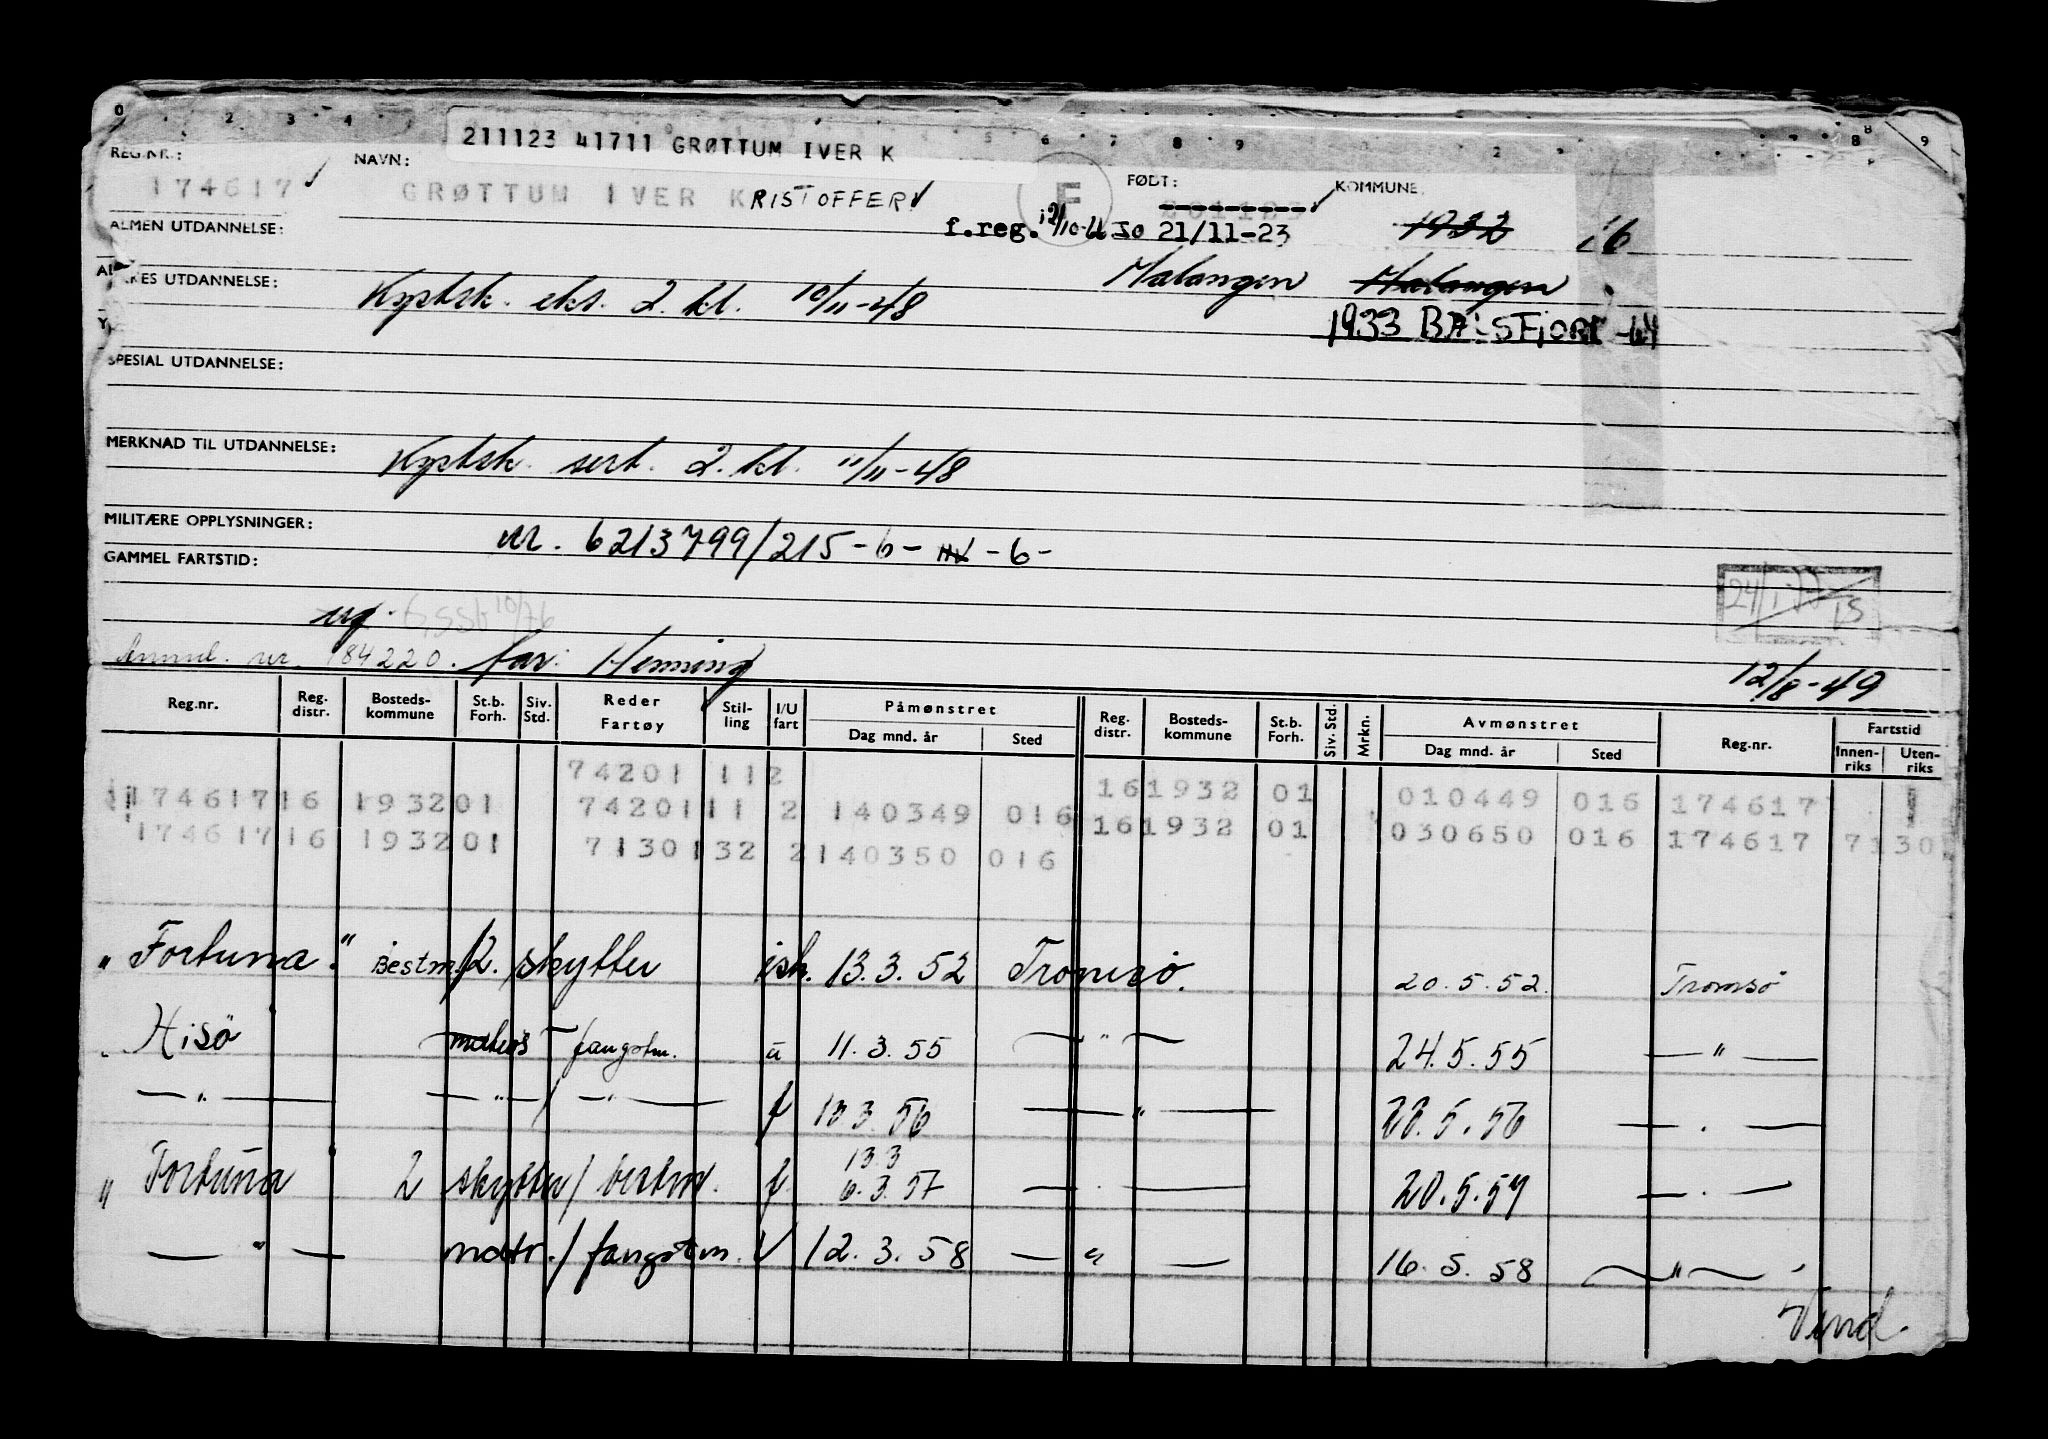 211123 41711 GRØTTUM IVER K
REG.NR.: NAVN: FØDT: KOMMUNE
174617 GRØTTUM IVER KRISTOFFER F
f.reg. 21/11-23 1932 16
ALMEN UTDANNELSE:
Malangen Malangen
YRKES UTDANNELSE: Kystsk. eks. 2. kl. 10/11-48
1933 BALSFJORD -64
SPESIAL UTDANNELSE:
MERKNAD TIL UTDANNELSE: Kystsk. sert. 2. kl. 11/11-48
MILITÆRE OPPLYSNINGER: nr. 6213799/215-6- -6-
GAMMEL FARTSTID:
ug.
Anmd. nr. 184220. far: Henning
12/8-49
Reg.nr. Reg. distr. Bosteds-kommune St.b. Forh. Siv. Std. Reder Fartøy Stil-ling I/U fart Påmønstret Dag mnd. år Sted Reg. distr. Bosteds-kommune St.b. Forh. Siv. Std. Mrkn. Avmønstret Dag mnd. år Sted Reg.nr. Fartstid Innen-riks Uten-riks
74201 112
174617 16 1932 01 74201 11 2 140349 016 16 1932 01 010449 016 174617
174617 16 1932 01 7130 132 2 140350 016 16 1932 01 030650 016 174617 7130
"Fortuna" Bestm./2. skytter ish. 13.3.52 Tromsö. 20.5.52. Tromsö
" Hisö matros fangstm. u 11.3.55 — " — 24.5.55 — " —
— " — — " — / — " — f 10.3.56 — " — 22.5.56 — . —
13.3
" Fortuna 2 skytter / bestm. f 6.3.57 — . — 20.5.57 — . —
— " — matr. / fangstm. U 12.3.58 — " — 16.5.58 — " —
Vend.